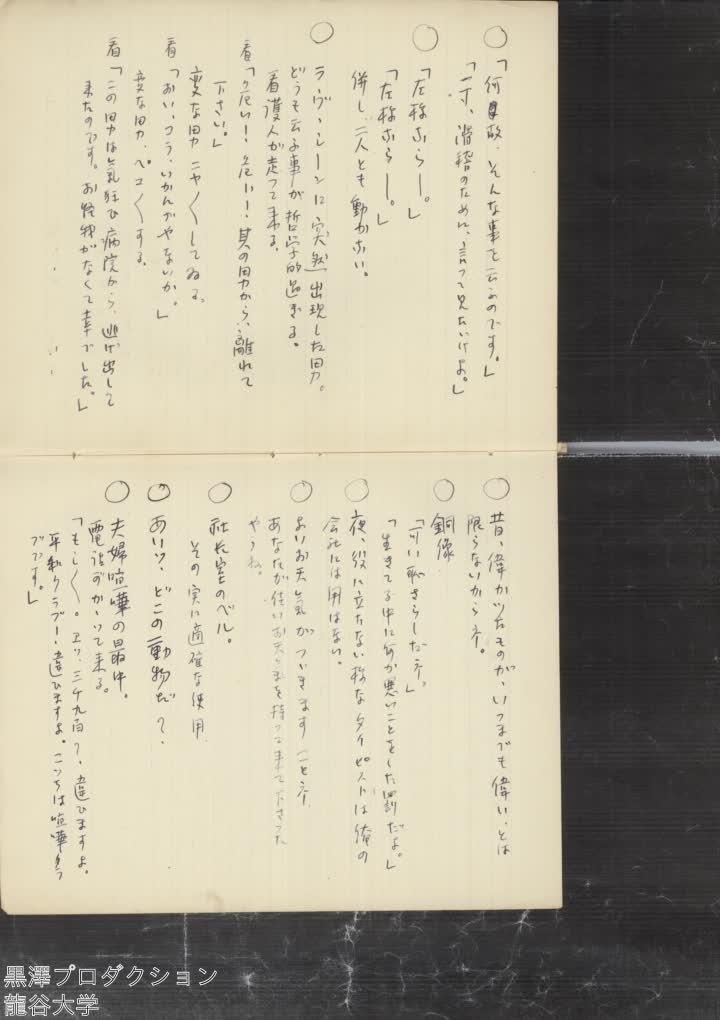 ○「何故、そんな事を云ふのです。」
「一寸、滑稽のために、言つて見たいけよ。」
○「左様なら―。」
「左様なら―。」
併し、二人とも動かない。
○ラヴ・シーンに突然出現した男。
どうも云ふ事が哲学的過ぎる。
看護人が走つて来る。
看「危い！危い！其の男から、離れて
下さい。」
変な男 ニヤ〱してゐる。
看「おい、コラ、いかんぢやないか。」
変な男、ペコ〱する。
看「この男は気狂ひ病院から、逃げ出して
来たのです。お怪我がなくて幸でした。」
○昔、偉かつたものが、いつまでも偉い、とは
限らないからネ。
○銅像
「いゝ恥さらしだネ。」
「生きてる中に何か悪いことをした罰だよ。」
○夜、役に立たない様なタイピストは俺の
会社には用はない。
○よいお天気がつゞきますことネ
あなたが佳いお天気を持つて来て下さつた
やうね。
○社長室のベル。
その実に適確な使用
○あいつ、どこの動物だ？
○夫婦喧嘩の最中。
電話がかゝつて来る。
「もし〱。エッ、三千九百？、違ひますよ。
平和クラブ―違ひますよ。こつちは喧嘩クラ
ブです。」
黒澤プロダクション
龍谷大学